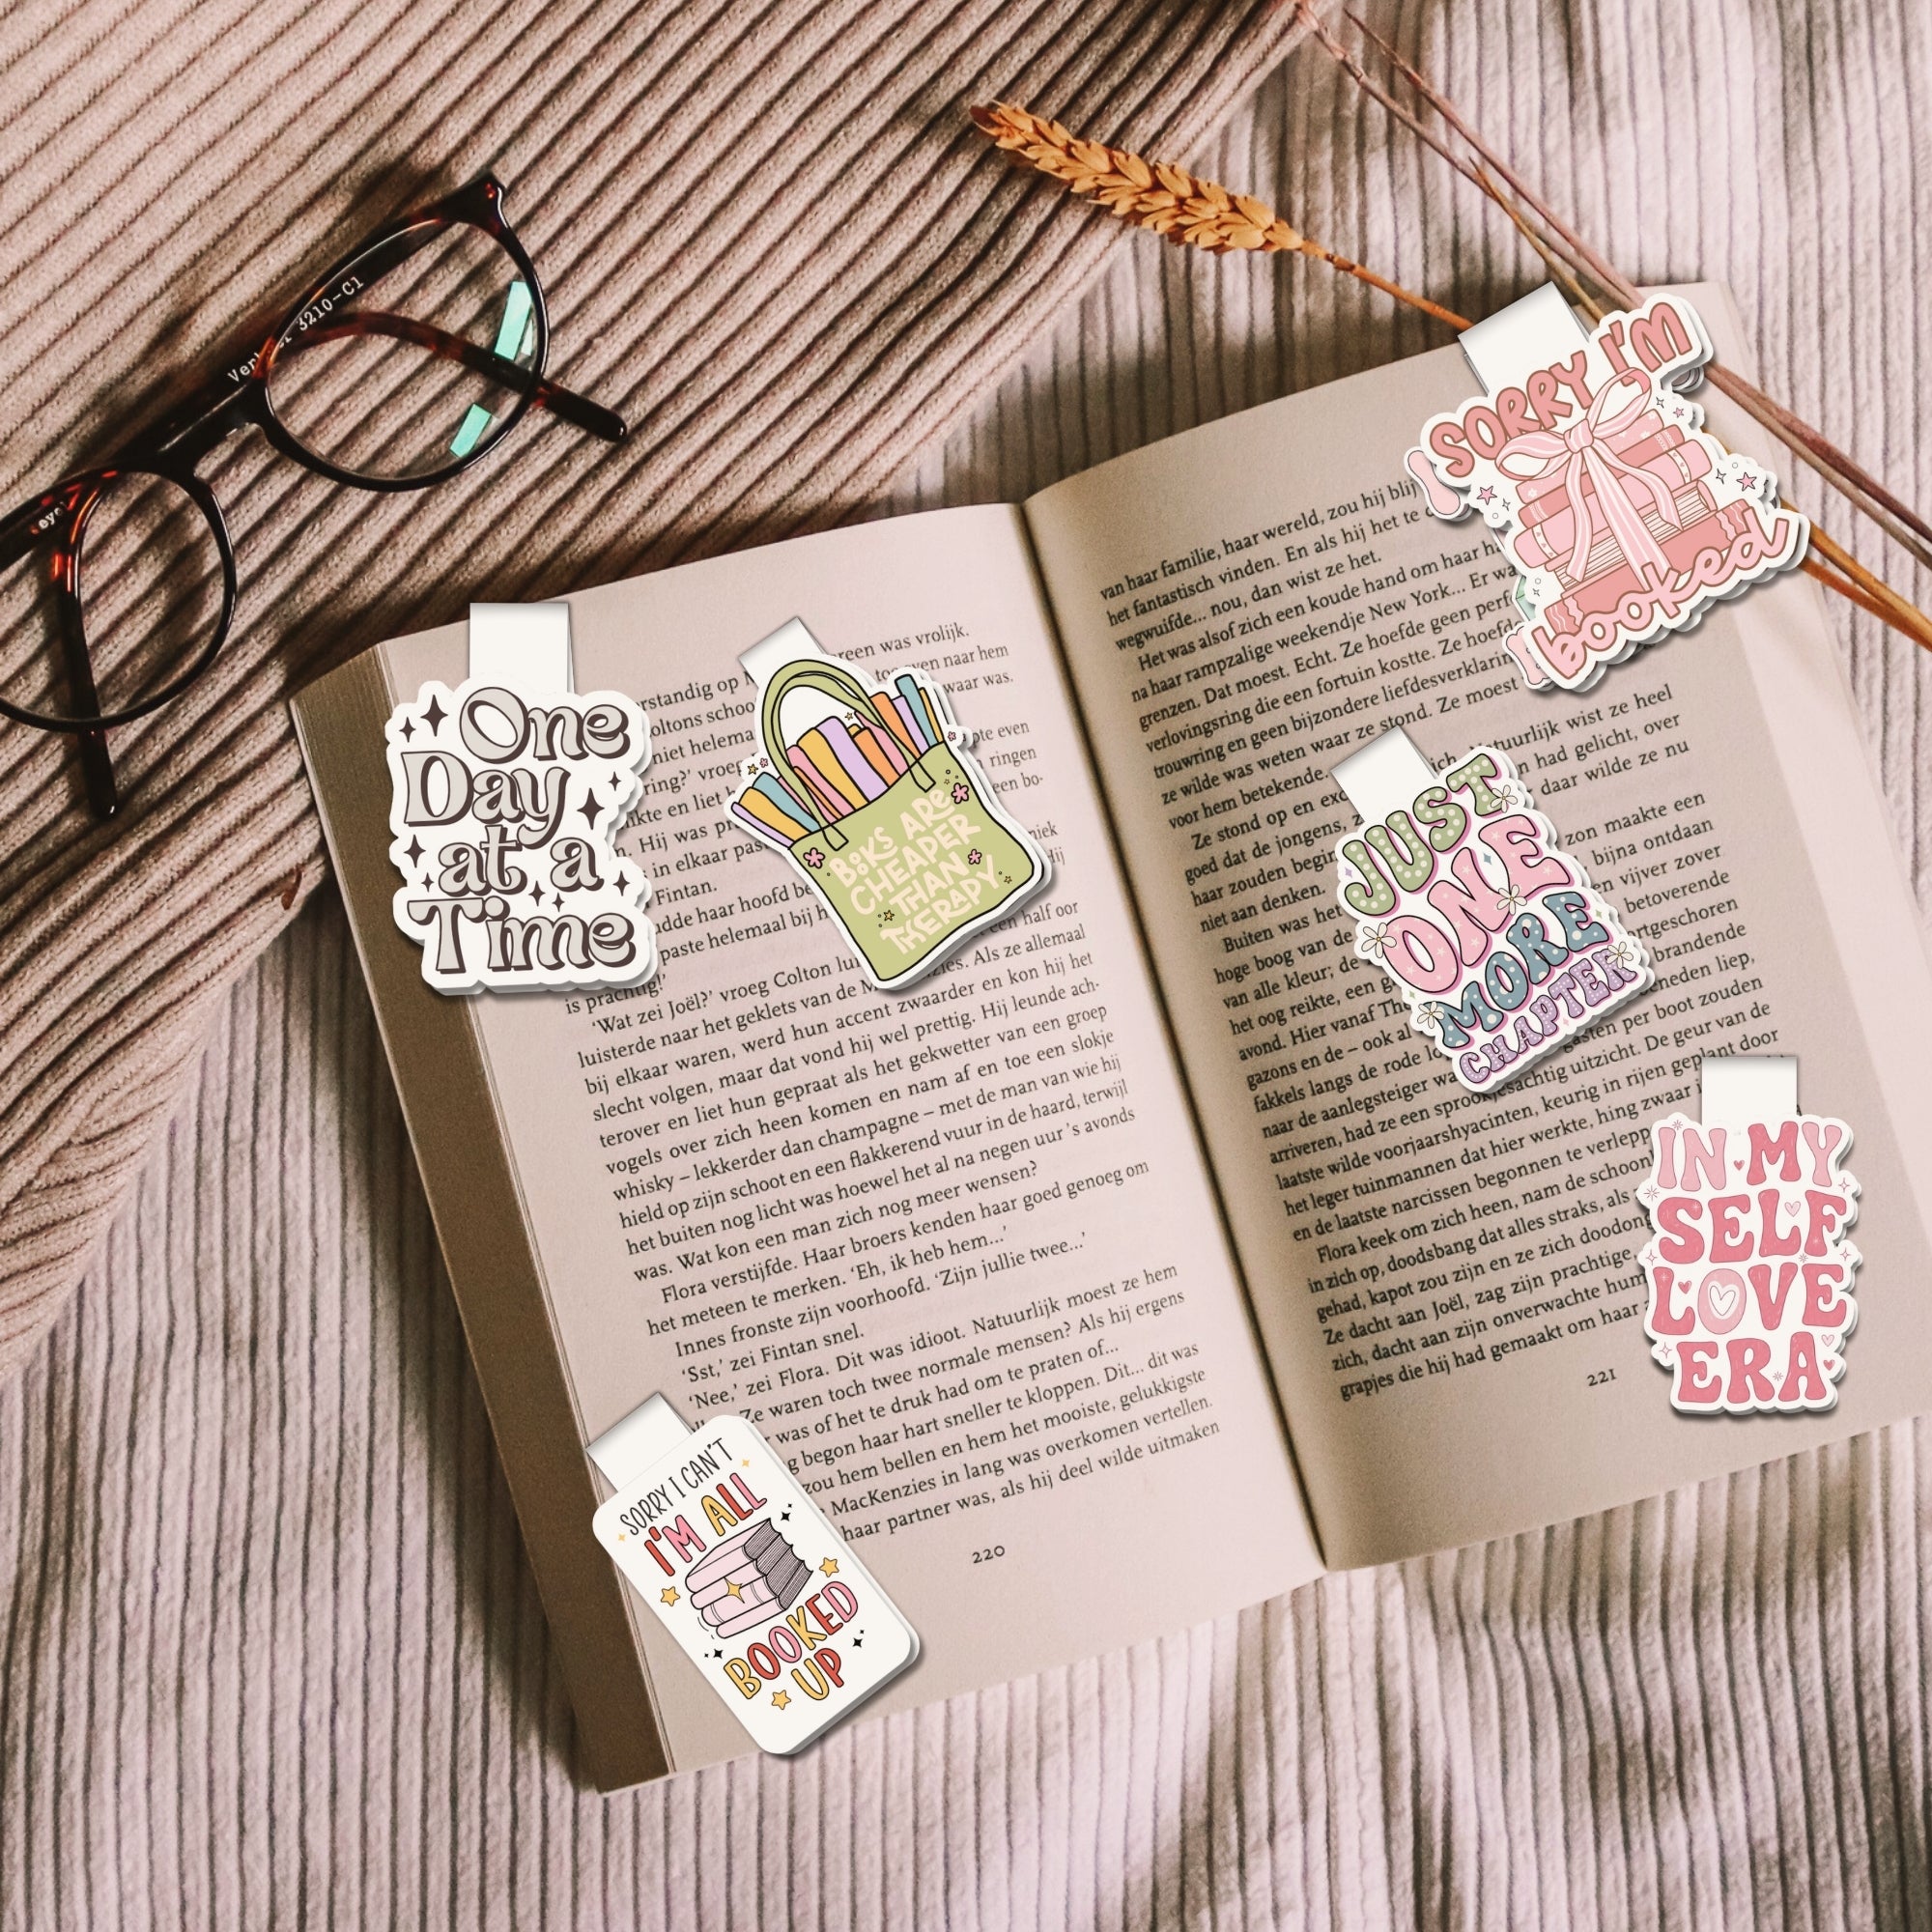 3210-C1
eye
One
Day
at a
Time
BOOKS ARE
CHEAPER
THAN
THERAPY
SORRY I'M
booked
JUST
ONE
MORE
CHAPTER
IN MY
SELF
LOVE
ERA
SORRY I CAN'T
I'M ALL
BOOKED
UP
reen was vrolijk.
rstandig op
ven naar hem
oltons schoo
waar was.
niet helema
pte even
ring?' vroeg
ringen
ikte en liet h
een bo-
n. Hij was pr
niek
in elkaar pas
Hij
Fintan.
udde haar hoofd be
paste helemaal bij h
een half oor
is prachtig!'
zies. Als ze allemaal
'Wat zei Joël?' vroeg Colton lui
luisterde naar het geklets van de M
bij elkaar waren, werd hun accent zwaarder en kon hij het
slecht volgen, maar dat vond hij wel prettig. Hij leunde ach-
terover en liet hun gepraat als het gekwetter van een groep
vogels over zich heen komen en nam af en toe een slokje
whisky – lekkerder dan champagne – met de man van wie hij
hield op zijn schoot en een flakkerend vuur in de haard, terwijl
het buiten nog licht was hoewel het al na negen uur 's avonds
was. Wat kon een man zich nog meer wensen?
Flora verstijfde. Haar broers kenden haar goed genoeg om
het meteen te merken. 'Eh, ik heb hem...'
Innes fronste zijn voorhoofd. 'Zijn jullie twee...'
'Sst,' zei Fintan snel.
'Nee,' zei Flora. Dit was idioot. Natuurlijk moest ze hem
Ze waren toch twee normale mensen? Als hij ergens
was of het te druk had om te praten of...
begon haar hart sneller te kloppen. Dit... dit was
zou hem bellen en hem het mooiste, gelukkigste
MacKenzies in lang was overkomen vertellen.
haar partner was, als hij deel wilde uitmaken
220
van haar familie, haar wereld, zou hij blij
het fantastisch vinden. En als hij het te
wegwuifde... nou, dan wist ze het.
Het was alsof zich een koude hand om haar ha
na haar rampzalige weekendje New York... Er wa
grenzen. Dat moest. Echt. Ze hoefde geen perf
verlovingsring die een fortuin kostte. Ze hoefd
trouwring en geen bijzondere liefdesverklarin
ze wilde was weten waar ze stond. Ze moest
voor hem betekende.
ich
tuurlijk wist ze heel
Ze stond op en exc
n had gelicht, over
goed dat de jongens, z
daar wilde ze nu
haar zouden begin
niet aan denken.
zon maakte een
Buiten was het
bijna ontdaan
hoge boog van de
en vijver zover
van alle kleur; de
betoverende
het oog reikte, een g
ortgeschoren
avond. Hier vanaf Th
brandende
gazons en de – ook al
neden liep,
fakkels langs de rode lo
gasten per boot zouden
naar de aanlegsteiger wa
arriveren, had ze een sprookjesachtig uitzicht. De geur van de
laatste wilde voorjaarshyacinten, keurig in rijen geplant door
het leger tuinmannen dat hier werkte, hing zwaar i
en de laatste narcissen begonnen te verlepp
Flora keek om zich heen, nam de schoonh
in zich op, doodsbang dat alles straks, als
gehad, kapot zou zijn en ze zich doodong
Ze dacht aan Joël, zag zijn prachtige,
zich, dacht aan zijn onverwachte hum
grapjes die hij had gemaakt om haar
221